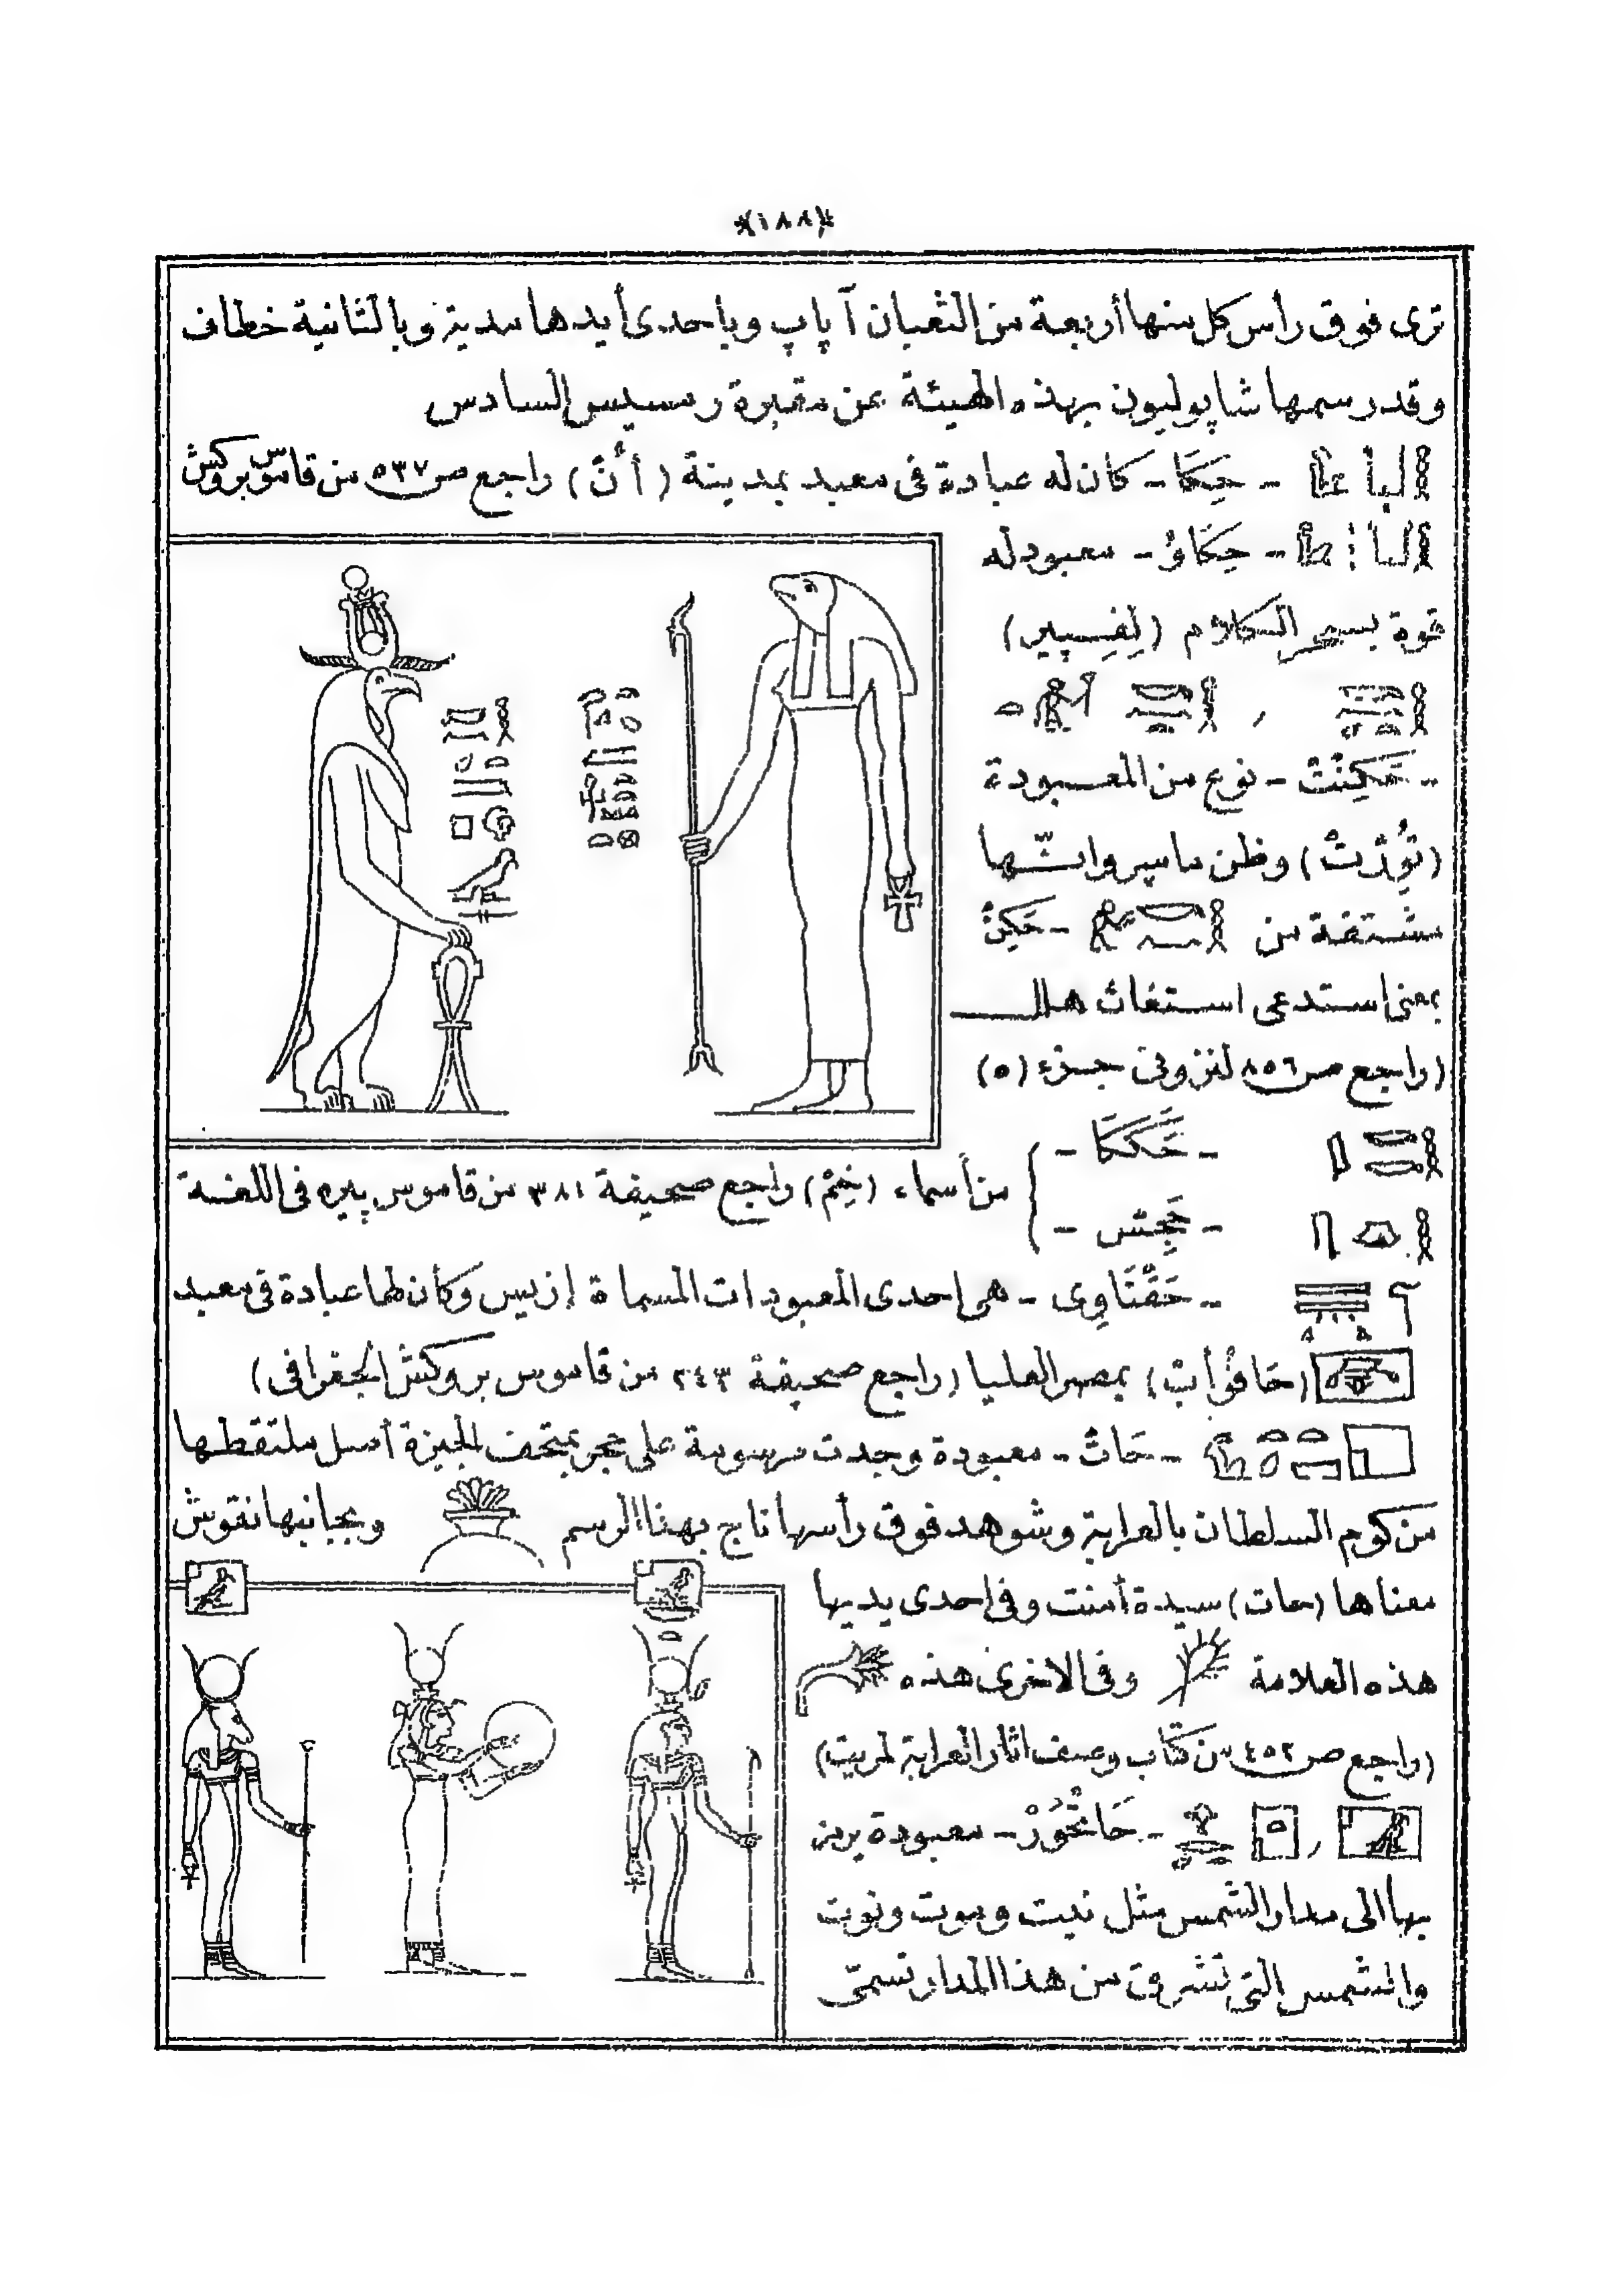 ﴿١٨٨﴾
ترى فوق رأس كل منها أربعة من الثعبان آپاپ وباحدى أيدها مدية وبالثانية خطاف
وقد رسمها شاپوليون بهذه الهيئة عن مقبرة رمسيس السادس
- حِيكَا - كان له عبادة فى معبد بمدينة (أُنْ) راجع ص ٥٣٧ من قاموس بروكش
- حِكَاوْ - معبود له
قوة بسحر الكلام (لِفِسِپِير)
- حَكِنْتْ - نوع من المعبودة
(تُوِرْت) وظن ماسپرو انّها
مشتقة من - حَكِنْ
بمعنى استدعى استغاث هلل
(راجع ص ٨٥٦ لنزونى جزء (٥)
- حَكَكَا -
- حَجِس - من أسماء (خِنِمْ) راجع صحيفة ٣٨١ من قاموس پيره فى اللغة
- حَقْتَاوِى - هى احدى المعبودات المسماة إزيس وكان لها عبادة فى معبد
(حَافُوأبْ) بمصر العليا (راجع صحيفة ٢٤٣ من قاموس بروكش الجغرافى)
- حَاتْ - معبودة وجدت مرسومة على حجر بمتحف الجيزة أصل ملتقطها
من كوم السلطان بالعرابة وشوهد فوق رأسها تاج بهذا الرسم وبجانبها نقوش
معناها (حات) سيدة أمنت وفى احدى يديها
هذه العلامة وفى الاخرى هذه
(راجع ص ٤٥٢ من كتاب وصف اثار العرابة لمريت)
- حَاتْحُورْ - معبودة يرمز
بها الى مدار الشمس مثل نيت وموت ونوت
والشمس التى تشرق من هذا المدار تسمّى